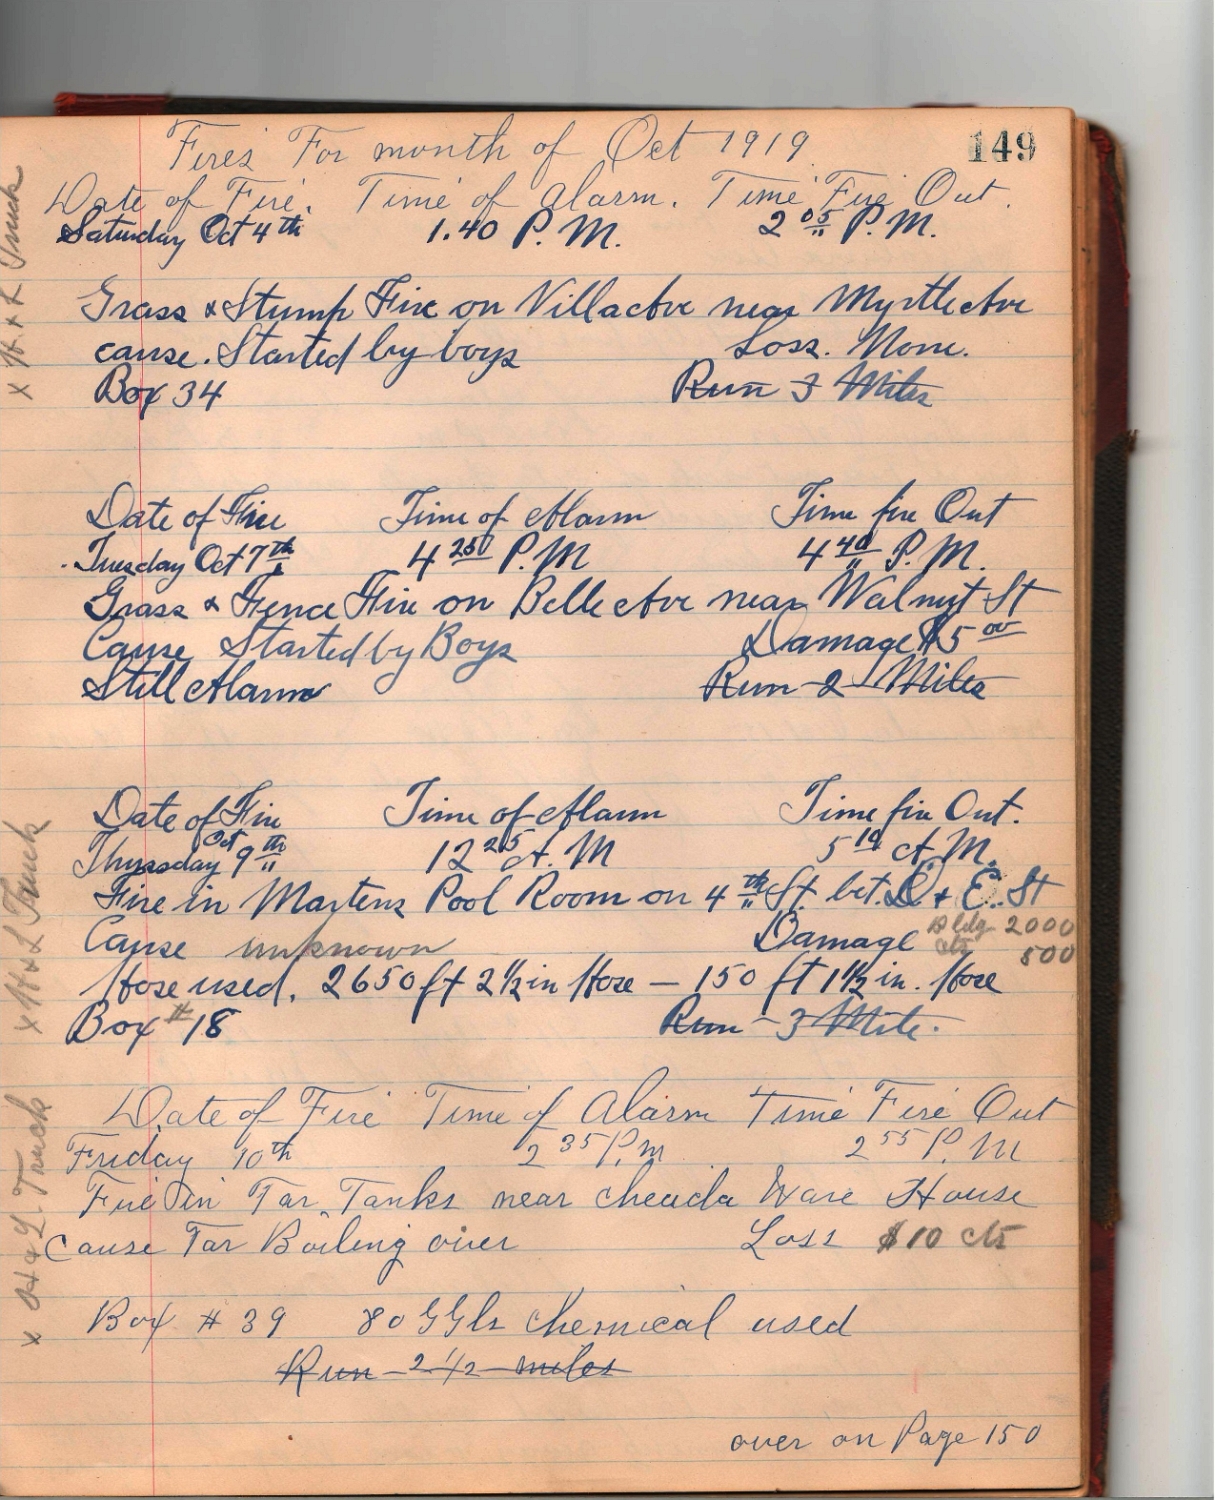 Fires For month of Oct 1919
149
Date of Fire. Time of Alarm. Time Fire Out.
Saturday Oct 4th 1.40 P.M. 2 05 P.M.
x H. & L Truck
Grass & Stump Fire on Villa Ave near Myrtle Ave
cause. Started by boys Loss. None.
Box 34 Run 3 Miles
Date of Fire Time of Alarm Time fire Out
Tuesday Oct 7th 4 25 P.M 4 40 P.M.
Grass & Fence Fire on Belle Ave near Walnut St
Cause Started by Boys Damage $5 00
Still Alarm Run 2 Miles
Date of Fire Time of Alarm Time fire Out.
Thursday Oct 9th 12 25 A.M 5 10 A.M.
x H & L Truck
Fire in Martens Pool Room on 4th St. bet. D + E. St
Cause unknown Damage Bldg 2000
cts 500
Hose used. 2650 ft 2 1/2 in Hose — 150 ft 1 1/2 in. Hose
Box #18 Run - 3 Mile.
Date of Fire Time of Alarm Time Fire Out
Friday 10th 2 35 P.m 2 55 P.M
x H & L. Truck
Fire in Tar Tanks near Cheada Ware House
Cause Tar Boiling over Loss $10 cts
Box # 39 80 GGls chemical used
Run - 2 1/2 miles
over on Page 150